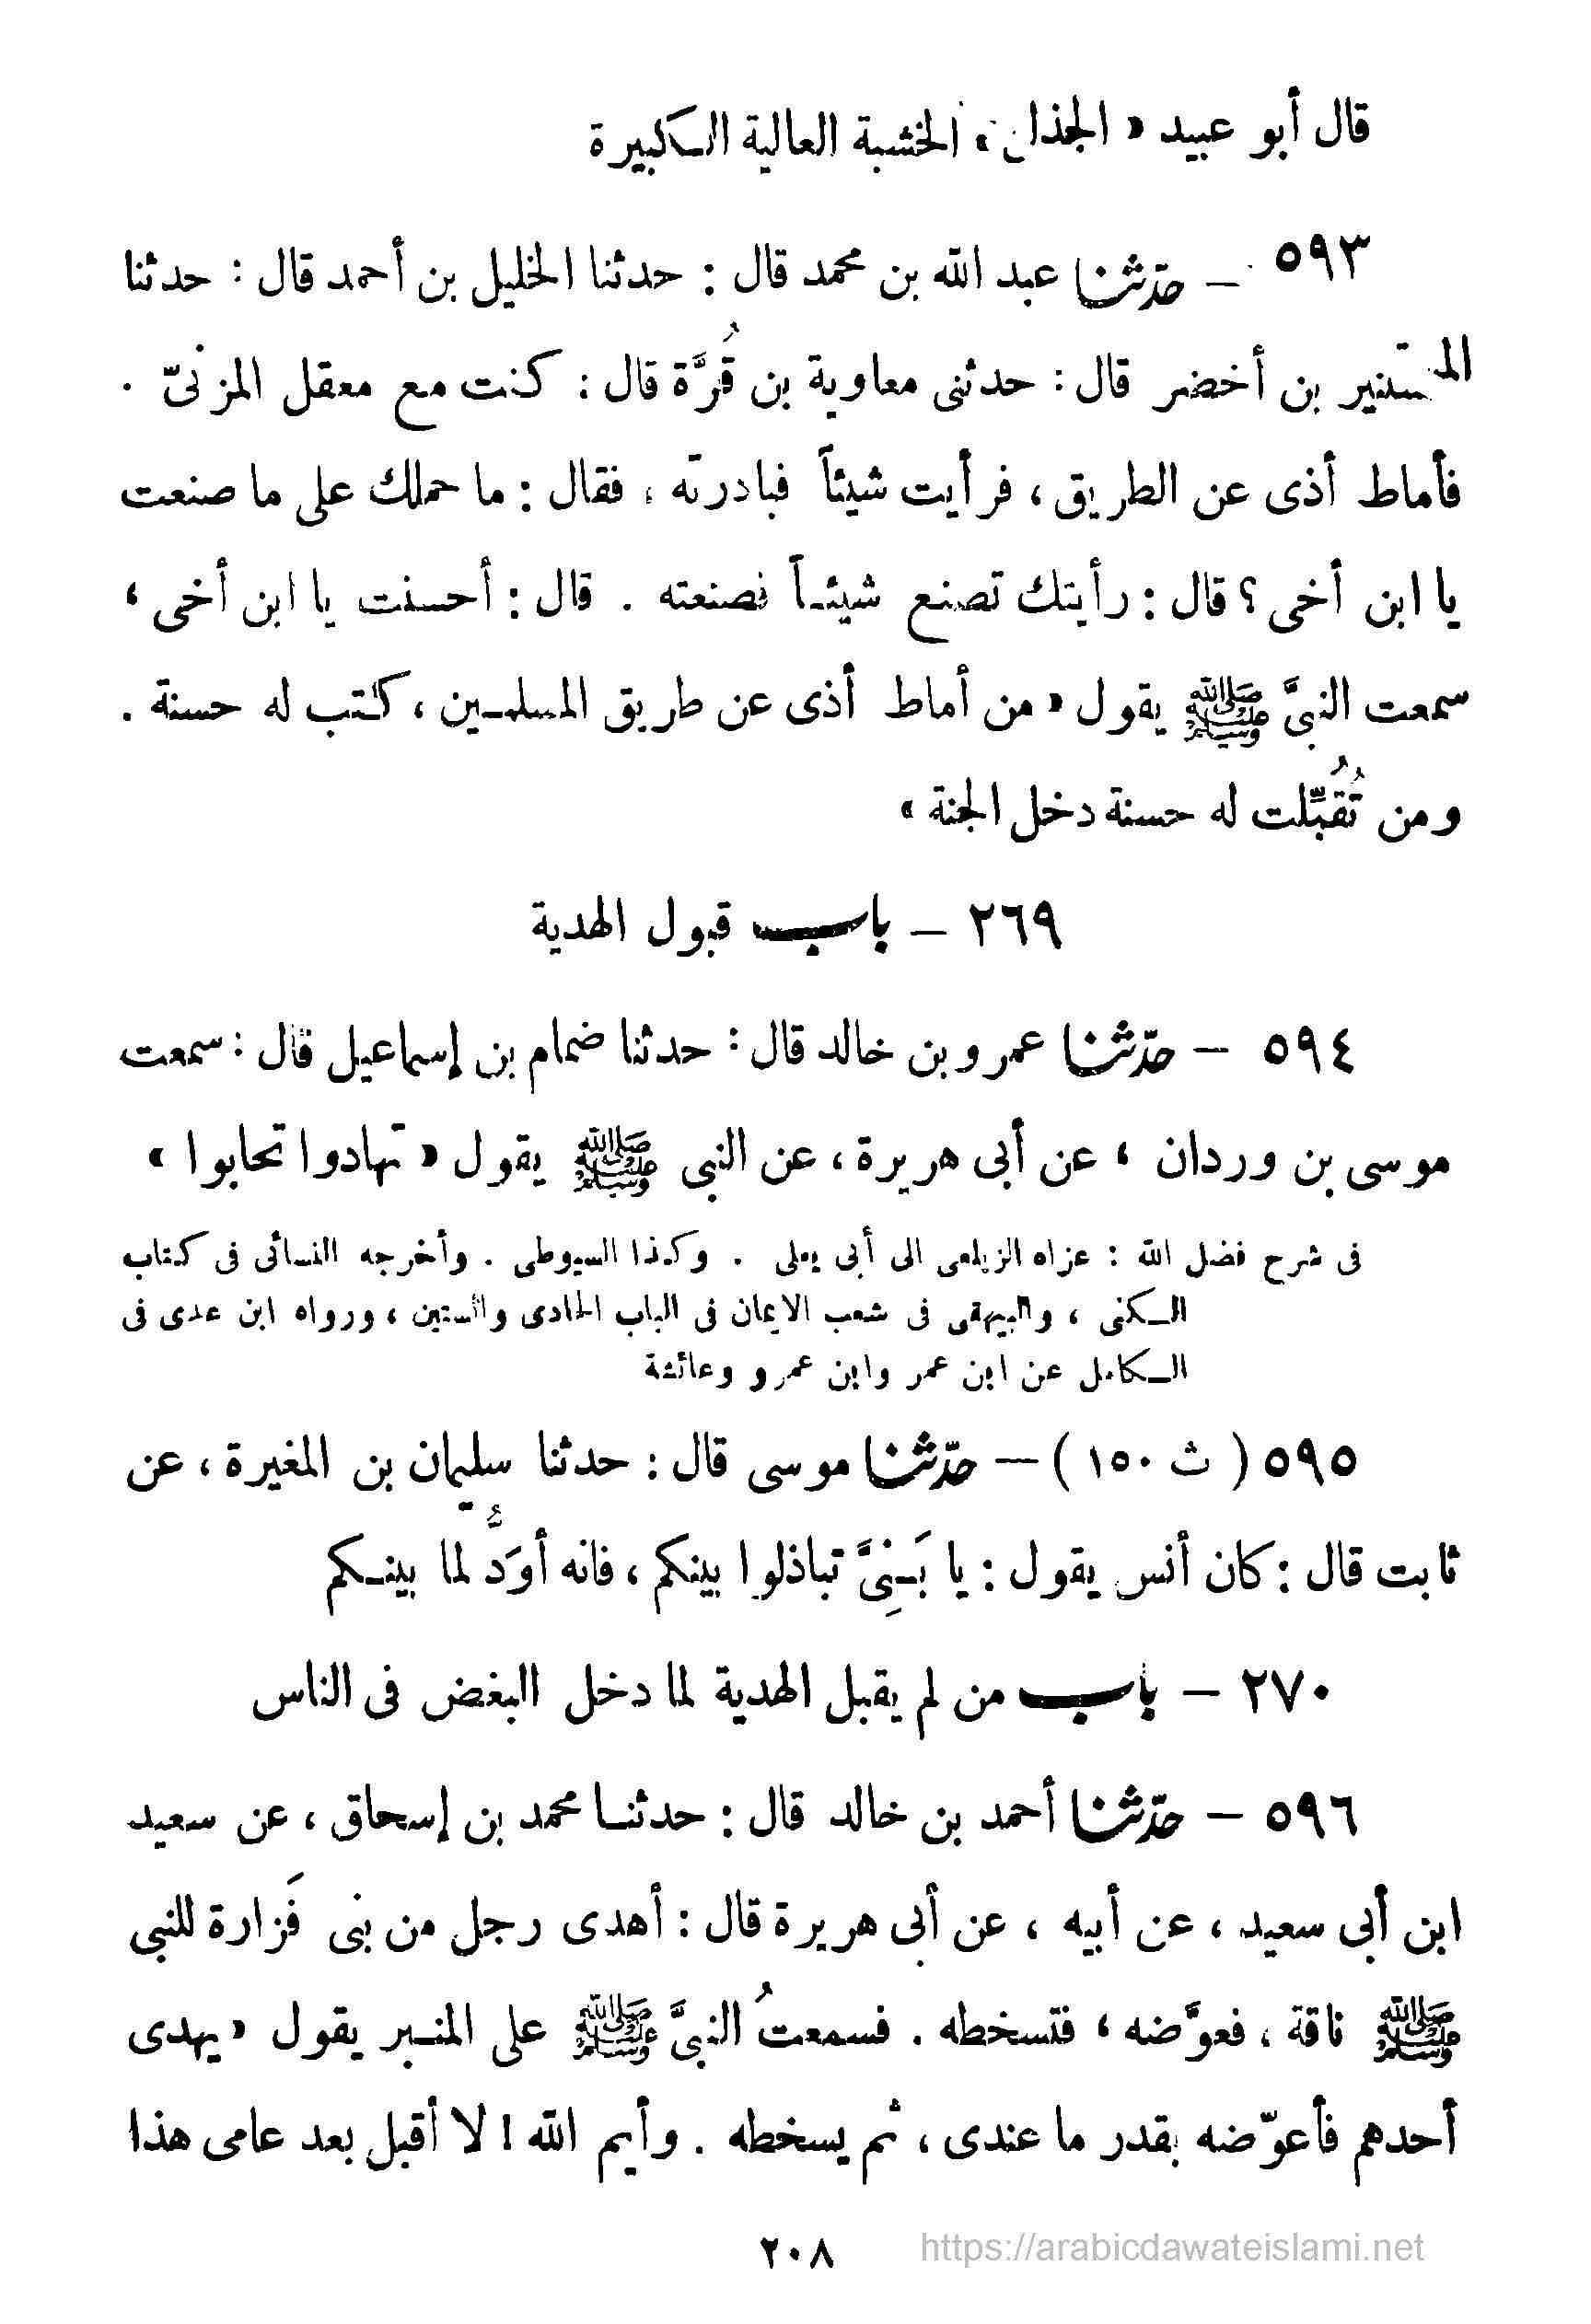 قال أبو عبيد « الجذاع » الخشبة العالية الكبيرة
٥٩٣ — حدّثنا عبد الله بن محمد قال : حدثنا الخليل بن أحمد قال : حدثنا
المستنير بن أخضر قال : حدثنى معاوية بن قُرَّة قال : كنت مع معقل المزنىّ .
فأماط أذى عن الطريق ، فرأيت شيئاً فبادرته ، فقال : ما حملك على ما صنعت
يا ابن أخى ؟ قال : رأيتك تصنع شيئاً فصنعته . قال : أحسنت يا ابن أخى ،
سمعت النبىَّ ﷺ يقول « من أماط أذى عن طريق المسلمين ، كتب له حسنة .
ومن تُقُبِّلت له حسنة دخل الجنة »
٢٦٩ — باب قبول الهدية
٥٩٤ — حدّثنا عمرو بن خالد قال : حدثنا ضمام بن إسماعيل قال : سمعت
موسى بن وردان ، عن أبى هريرة ، عن النبى ﷺ يقول « تهادوا تحابوا »
فى شرح فضل الله : عزاه الزيلعى الى أبى يعلى . وكذا السيوطى . وأخرجه النسائى فى كتاب
الكنى ، والبيهقى فى شعب الايمان فى الباب الحادى والستين ، ورواه ابن عدى فى
الكامل عن ابن عمر وابن عمرو وعائشة
٥٩٥ ( ث ١٥٠ ) — حدّثنا موسى قال : حدثنا سليمان بن المغيرة ، عن
ثابت قال : كان أنس يقول : يا بَنِىَّ تباذلوا بينكم ، فانه أوَدُّ لما بينكم
٢٧٠ — باب من لم يقبل الهدية لما دخل البغض فى الناس
٥٩٦ — حدّثنا أحمد بن خالد قال : حدثنا محمد بن إسحاق ، عن سعيد
ابن أبى سعيد ، عن أبيه ، عن أبى هريرة قال : أهدى رجل من بنى فَزارة للنبى
ﷺ ناقة ، فعوَّضه ، فتسخطه . فسمعتُ النبىَّ ﷺ على المنبر يقول « يهدى
أحدهم فأعوّضه بقدر ما عندى ، ثم يسخطه . وأيم الله ! لا أقبل بعد عامى هذا
٢٠٨
https://arabicdawateislami.net